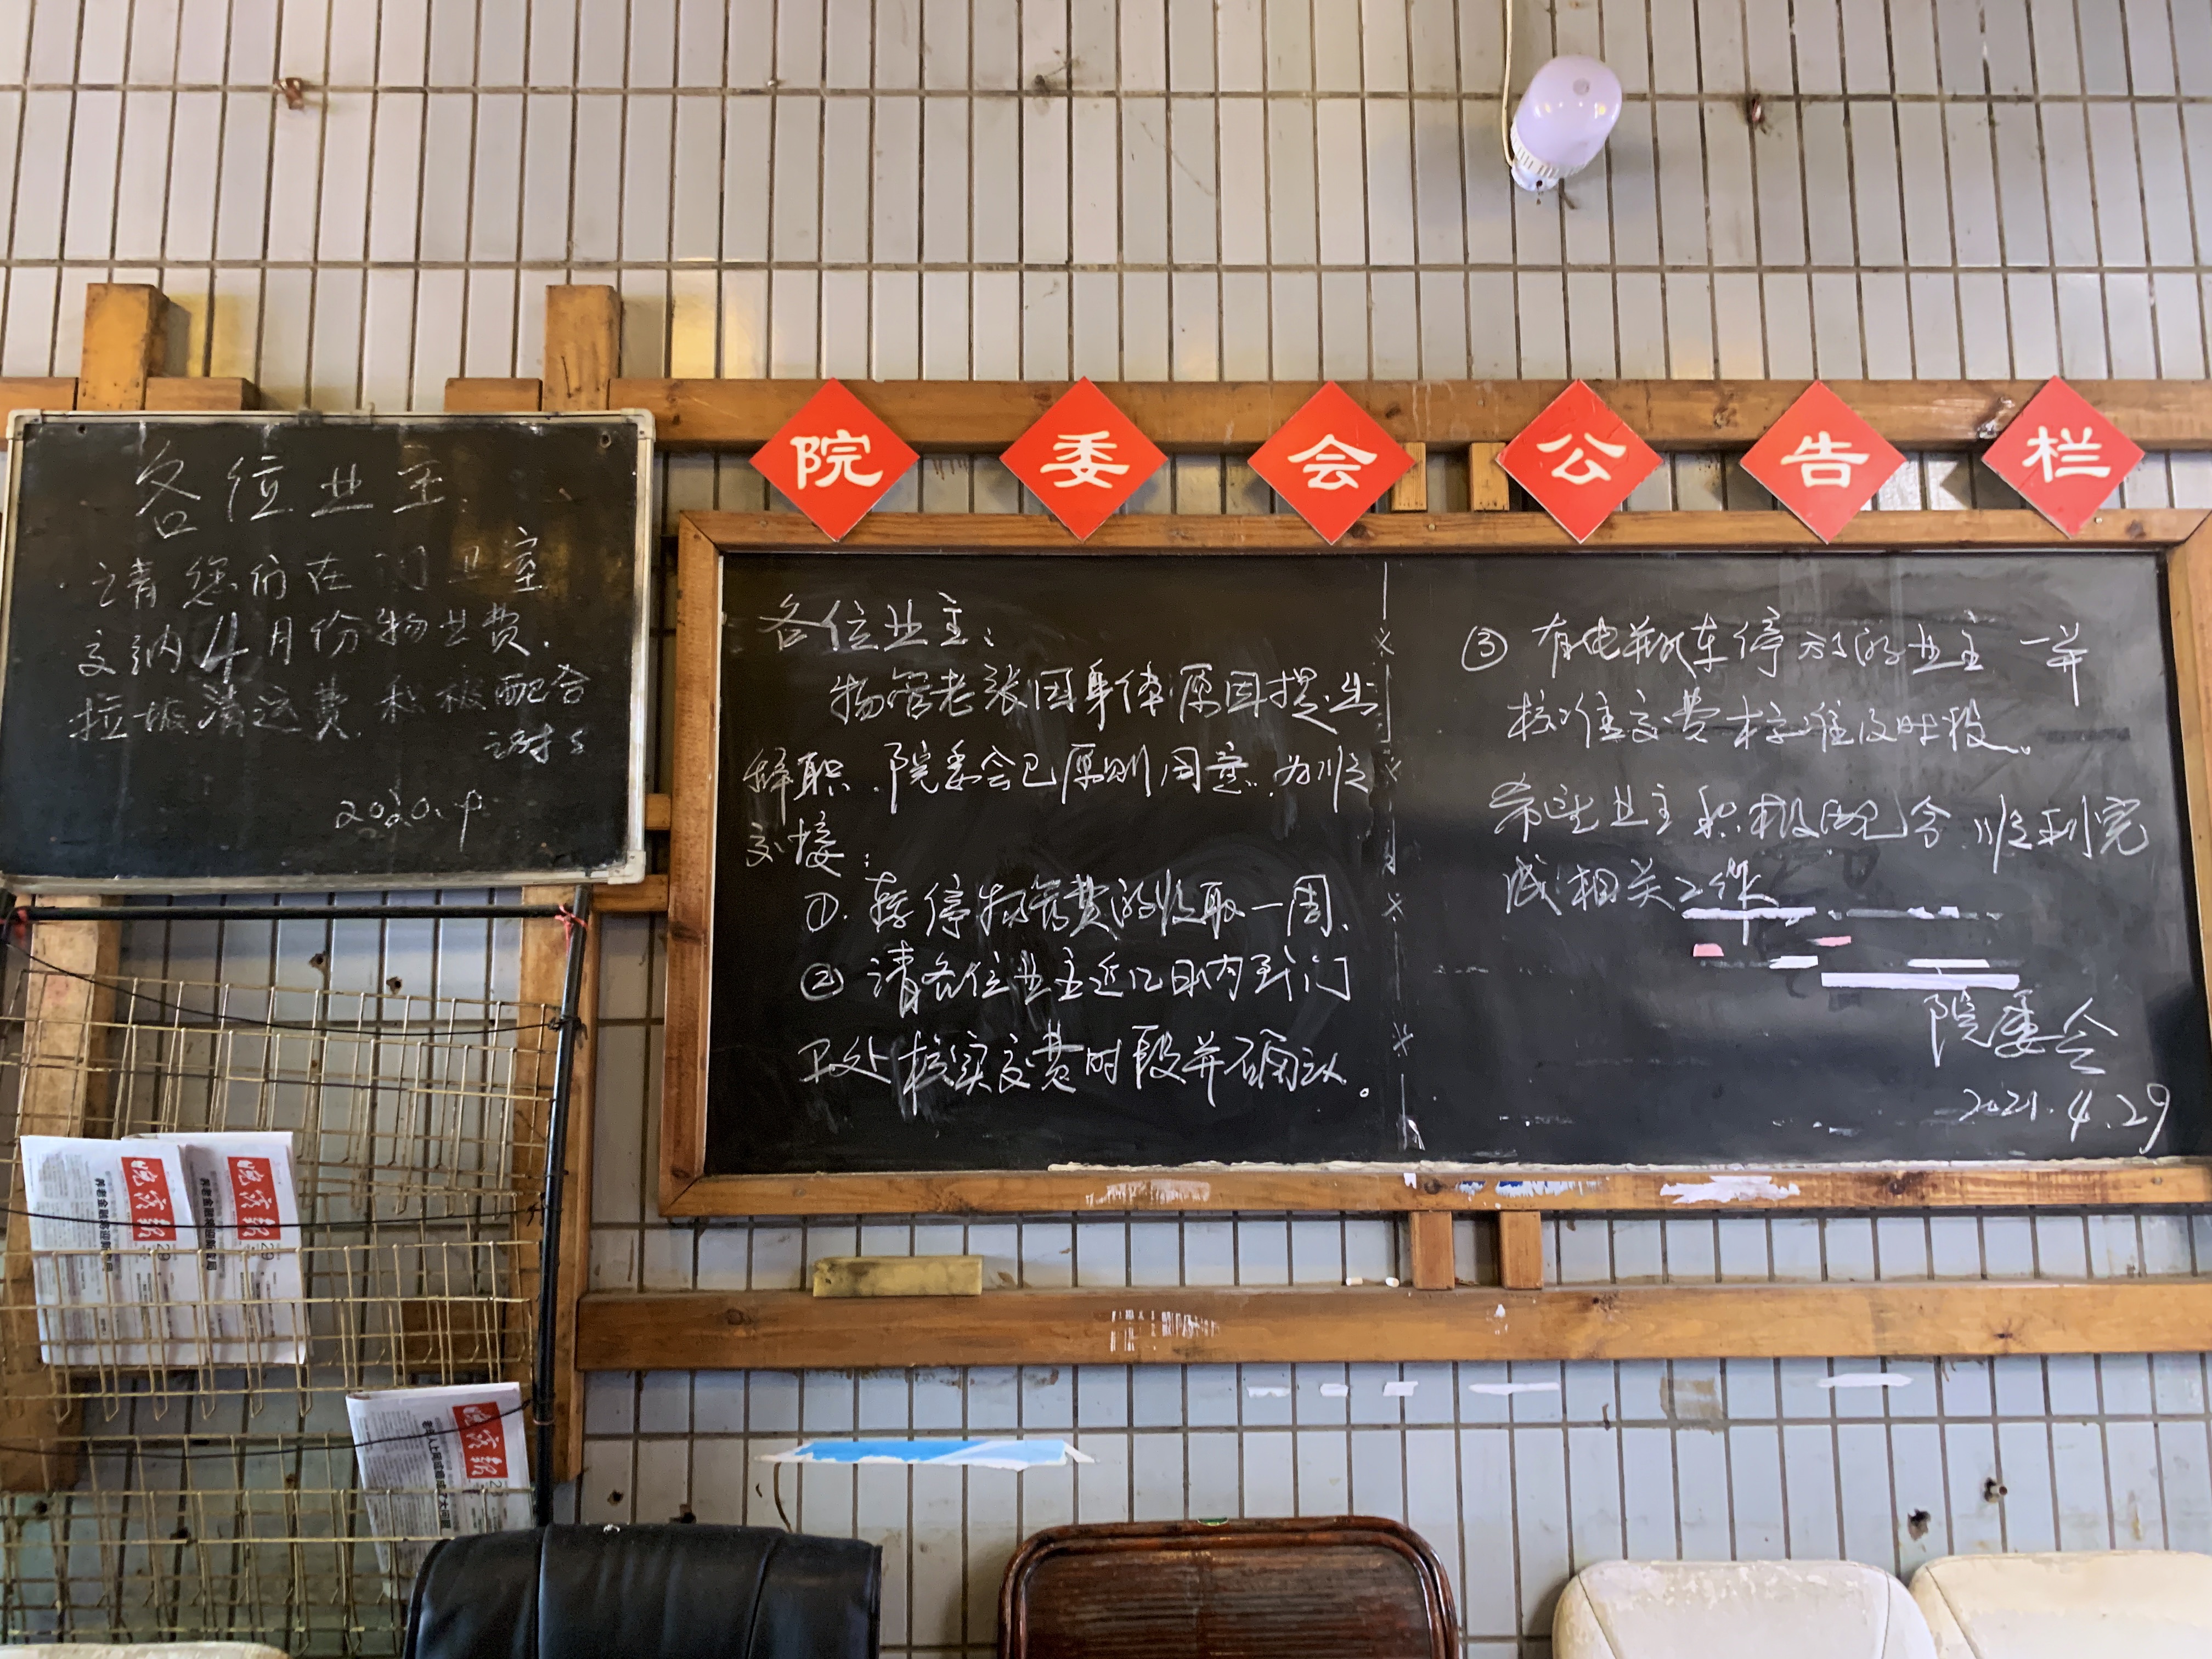 院委会公告栏
各位业主
请您们在门卫室
交纳4月份物业费.
垃圾清运费.积极配合
谢谢
2020.4
各位业主:
物管老张因身体原因提出
辞职.院委会已原则同意.为顺
交接:
①.暂停物管费的收取一周.
②请各位业主近几日内到门
卫处核实交费时段并确认。
③有电瓶车停放的业主一并
核准交费核准及时段。
希望业主积极配合,顺利完
成相关工作
院委会
2021.4.29
晚霞报
29
晚霞报
29
晚霞报